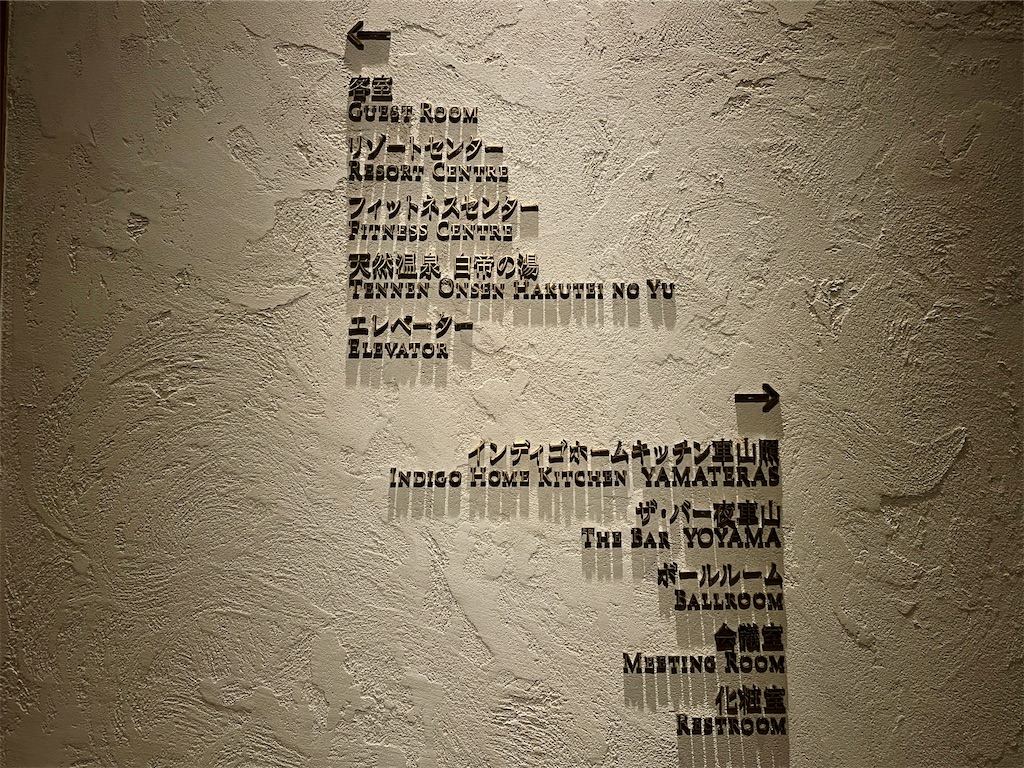 ←
客室
GUEST ROOM
リゾートセンター
RESORT CENTRE
フィットネスセンター
FITNESS CENTRE
天然温泉 白帝の湯
TENNEN ONSEN HAKUTEI NO YU
エレベーター
ELEVATOR
→
インディゴホームキッチン車山照
INDIGO HOME KITCHEN YAMATERAS
ザ・バー夜車山
THE BAR YOYAMA
ボールルーム
BALLROOM
会議室
MEETING ROOM
化粧室
RESTROOM